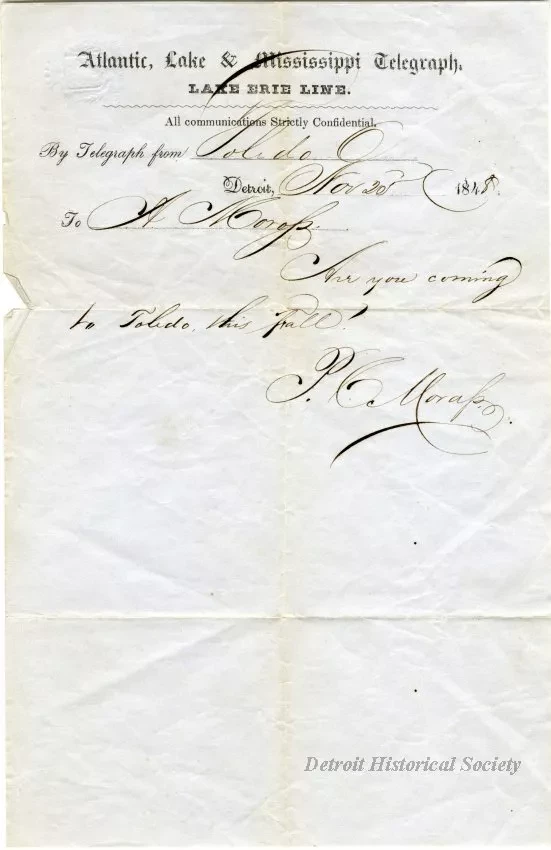 Atlantic, Lake & Mississippi Telegraph.
LAKE ERIE LINE.
All communications Strictly Confidential.
By Telegraph from Toledo O
Detroit, Nov 20 1848.
To A Moraſs
Are you coming
to Toledo this fall?
P. C. Moraſs.
Detroit Historical Society